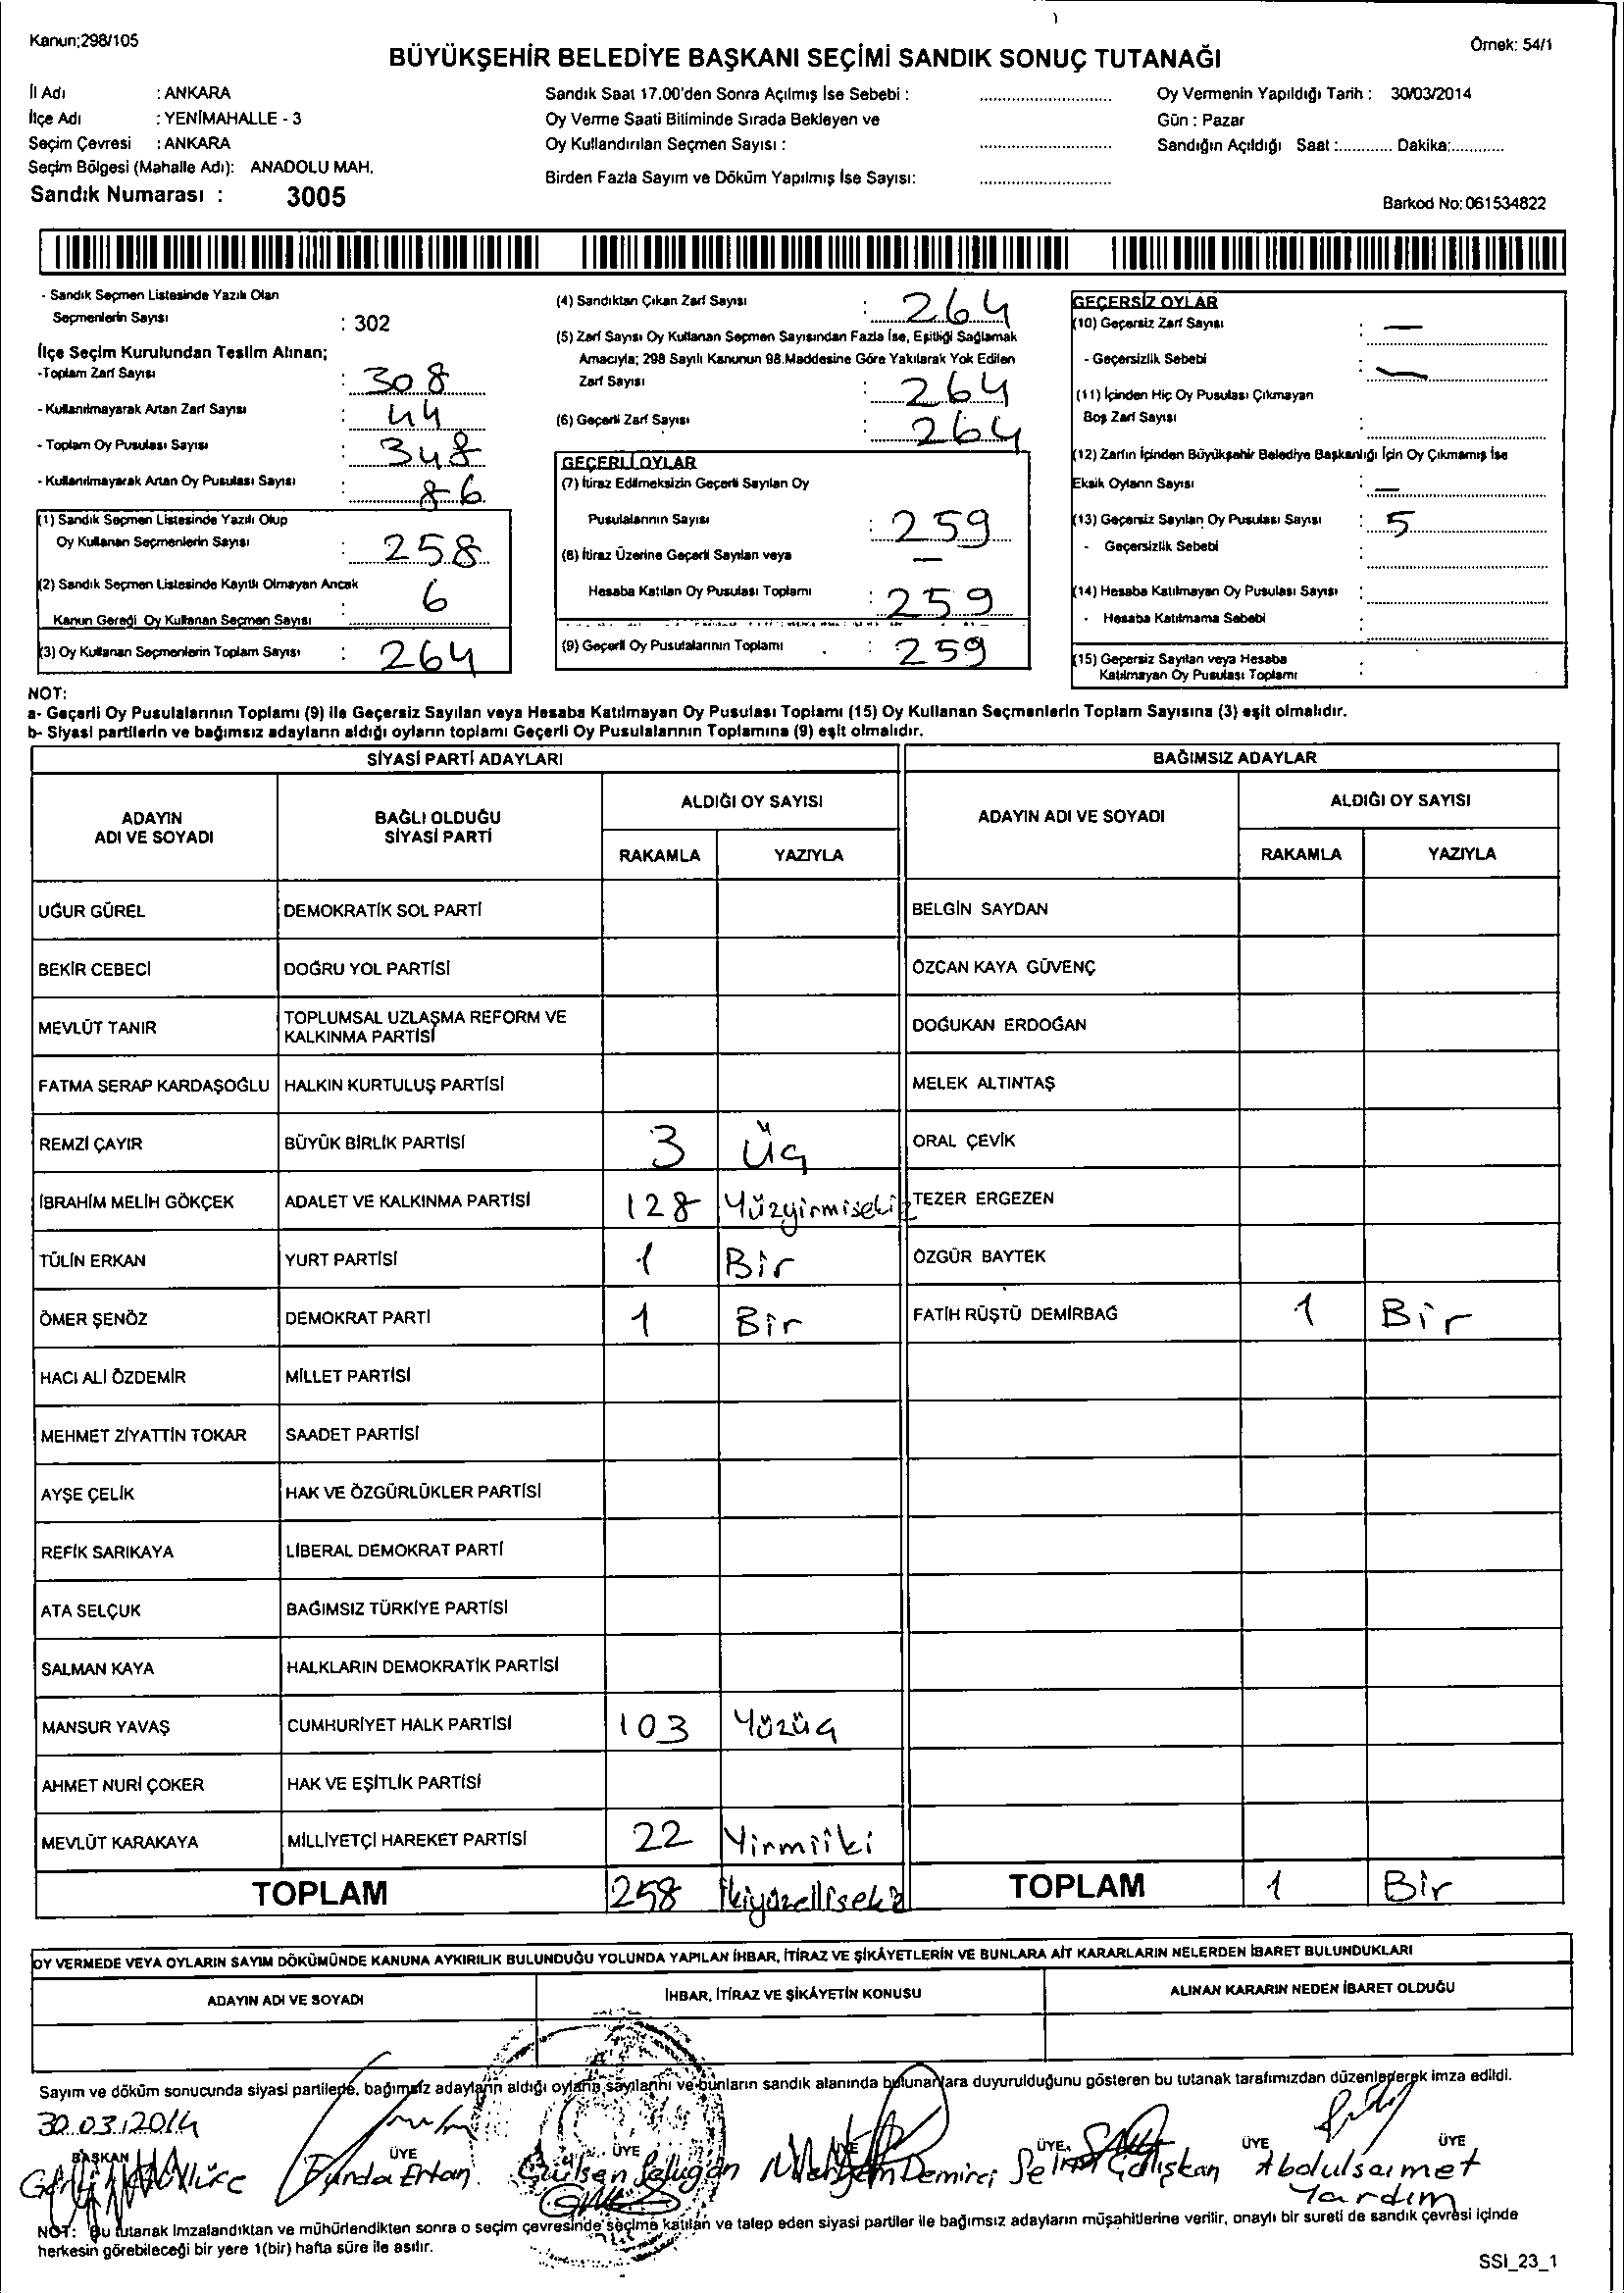 Kanun;298/105
Örnek: 54/1
BÜYÜKŞEHİR BELEDİYE BAŞKANI SEÇİMİ SANDIK SONUÇ TUTANAĞI
İl Adı : ANKARA
İlçe Adı : YENİMAHALLE - 3
Seçim Çevresi : ANKARA
Seçim Bölgesi (Mahalle Adı): ANADOLU MAH.
Sandık Numarası : 3005
Sandık Saat 17.00'den Sonra Açılmış İse Sebebi :
Oy Verme Saati Bitiminde Sırada Bekleyen ve
Oy Kullandırılan Seçmen Sayısı :
Birden Fazla Sayım ve Döküm Yapılmış İse Sayısı:
Oy Vermenin Yapıldığı Tarih : 30/03/2014
Gün : Pazar
Sandığın Açıldığı Saat :............ Dakika:............
Barkod No: 061534822
- Sandık Seçmen Listesinde Yazılı Olan
Seçmenlerin Sayısı : 302
İlçe Seçim Kurulundan Teslim Alınan;
-Toplam Zarf Sayısı : 308
- Kullanılmayarak Artan Zarf Sayısı : 44
- Toplam Oy Pusulası Sayısı : 348
- Kullanılmayarak Artan Oy Pusulası Sayısı : 86
(1) Sandık Seçmen Listesinde Yazılı Olup
Oy Kullanan Seçmenlerin Sayısı : 258
(2) Sandık Seçmen Listesinde Kayıtlı Olmayan Ancak
Kanun Gereği Oy Kullanan Seçmen Sayısı : 6
(3) Oy Kullanan Seçmenlerin Toplam Sayısı : 264
(4) Sandıktan Çıkan Zarf Sayısı : 264
(5) Zarf Sayısı Oy Kullanan Seçmen Sayısından Fazla İse, Eşitliği Sağlamak
Amacıyla; 298 Sayılı Kanunun 98.Maddesine Göre Yakılarak Yok Edilen
Zarf Sayısı : 264
(6) Geçerli Zarf Sayısı : 264
GEÇERLİ OYLAR
(7) İtiraz Edilmeksizin Geçerli Sayılan Oy
Pusulalarının Sayısı : 259
(8) İtiraz Üzerine Geçerli Sayılan veya —
Hesaba Katılan Oy Pusulası Toplamı : 259
(9) Geçerli Oy Pusulalarının Toplamı : 259
GEÇERSİZ OYLAR
(10) Geçersiz Zarf Sayısı : —
- Geçersizlik Sebebi : —
(11) İçinden Hiç Oy Pusulası Çıkmayan
Boş Zarf Sayısı :
(12) Zarfın İçinden Büyükşehir Belediye Başkanlığı İçin Oy Çıkmamış İse
Eksik Oyların Sayısı : —
(13) Geçersiz Sayılan Oy Pusulası Sayısı : 5
- Geçersizlik Sebebi :
(14) Hesaba Katılmayan Oy Pusulası Sayısı :
- Hesaba Katılmama Sebebi :
(15) Geçersiz Sayılan veya Hesaba
Katılmayan Oy Pusulası Toplamı :
NOT:
a- Geçerli Oy Pusulalarının Toplamı (9) ile Geçersiz Sayılan veya Hesaba Katılmayan Oy Pusulası Toplamı (15) Oy Kullanan Seçmenlerin Toplam Sayısına (3) eşit olmalıdır.
b- Siyasi partilerin ve bağımsız adayların aldığı oyların toplamı Geçerli Oy Pusulalarının Toplamına (9) eşit olmalıdır.
SİYASİ PARTİ ADAYLARI
BAĞIMSIZ ADAYLAR
ADAYIN ADI VE SOYADI
BAĞLI OLDUĞU SİYASİ PARTİ
ALDIĞI OY SAYISI
RAKAMLA YAZIYLA
ADAYIN ADI VE SOYADI
ALDIĞI OY SAYISI
RAKAMLA YAZIYLA
UĞUR GÜREL DEMOKRATİK SOL PARTİ BELGİN SAYDAN
BEKİR CEBECİ DOĞRU YOL PARTİSİ ÖZCAN KAYA GÜVENÇ
MEVLÜT TANIR TOPLUMSAL UZLAŞMA REFORM VE KALKINMA PARTİSİ DOĞUKAN ERDOĞAN
FATMA SERAP KARDAŞOĞLU HALKIN KURTULUŞ PARTİSİ MELEK ALTINTAŞ
REMZİ ÇAYIR BÜYÜK BİRLİK PARTİSİ 3 Üç ORAL ÇEVİK
İBRAHİM MELİH GÖKÇEK ADALET VE KALKINMA PARTİSİ 128 Yüzyirmisekiz TEZER ERGEZEN
TÜLİN ERKAN YURT PARTİSİ 1 Bir ÖZGÜR BAYTEK
ÖMER ŞENÖZ DEMOKRAT PARTİ 1 Bir FATİH RÜŞTÜ DEMİRBAĞ 1 Bir
HACI ALİ ÖZDEMİR MİLLET PARTİSİ
MEHMET ZİYATTİN TOKAR SAADET PARTİSİ
AYŞE ÇELİK HAK VE ÖZGÜRLÜKLER PARTİSİ
REFİK SARIKAYA LİBERAL DEMOKRAT PARTİ
ATA SELÇUK BAĞIMSIZ TÜRKİYE PARTİSİ
SALMAN KAYA HALKLARIN DEMOKRATİK PARTİSİ
MANSUR YAVAŞ CUMHURİYET HALK PARTİSİ 103 Yüzüç
AHMET NURİ ÇOKER HAK VE EŞİTLİK PARTİSİ
MEVLÜT KARAKAYA MİLLİYETÇİ HAREKET PARTİSİ 22 Yirmiiki
TOPLAM 258 İkiyüzellisekiz TOPLAM 1 Bir
OY VERMEDE VEYA OYLARIN SAYIM DÖKÜMÜNDE KANUNA AYKIRILIK BULUNDUĞU YOLUNDA YAPILAN İHBAR, İTİRAZ VE ŞİKÂYETLERİN VE BUNLARA AİT KARARLARIN NELERDEN İBARET BULUNDUKLARI
ADAYIN ADI VE SOYADI İHBAR, İTİRAZ VE ŞİKÂYETİN KONUSU ALINAN KARARIN NEDEN İBARET OLDUĞU
Sayım ve döküm sonucunda siyasi partilerle, bağımsız adayların aldığı oyların sayılarını ve bunların sandık alanında bulunanlara duyurulduğunu gösteren bu tutanak tarafımızdan düzenlenerek imza edildi.
30.03.2014
BAŞKAN ÜYE ÜYE ÜYE ÜYE ÜYE ÜYE
Funda Ertan Gülsen Demirci Çalışkan Abdulsamet
Yardım
NOT: Bu tutanak imzalandıktan ve mühürlendikten sonra o seçim çevresinde seçime katılan ve talep eden siyasi partiler ile bağımsız adayların müşahitlerine verilir, onaylı bir sureti de sandık çevresi içinde
herkesin görebileceği bir yere 1(bir) hafta süre ile asılır.
SSI_23_1